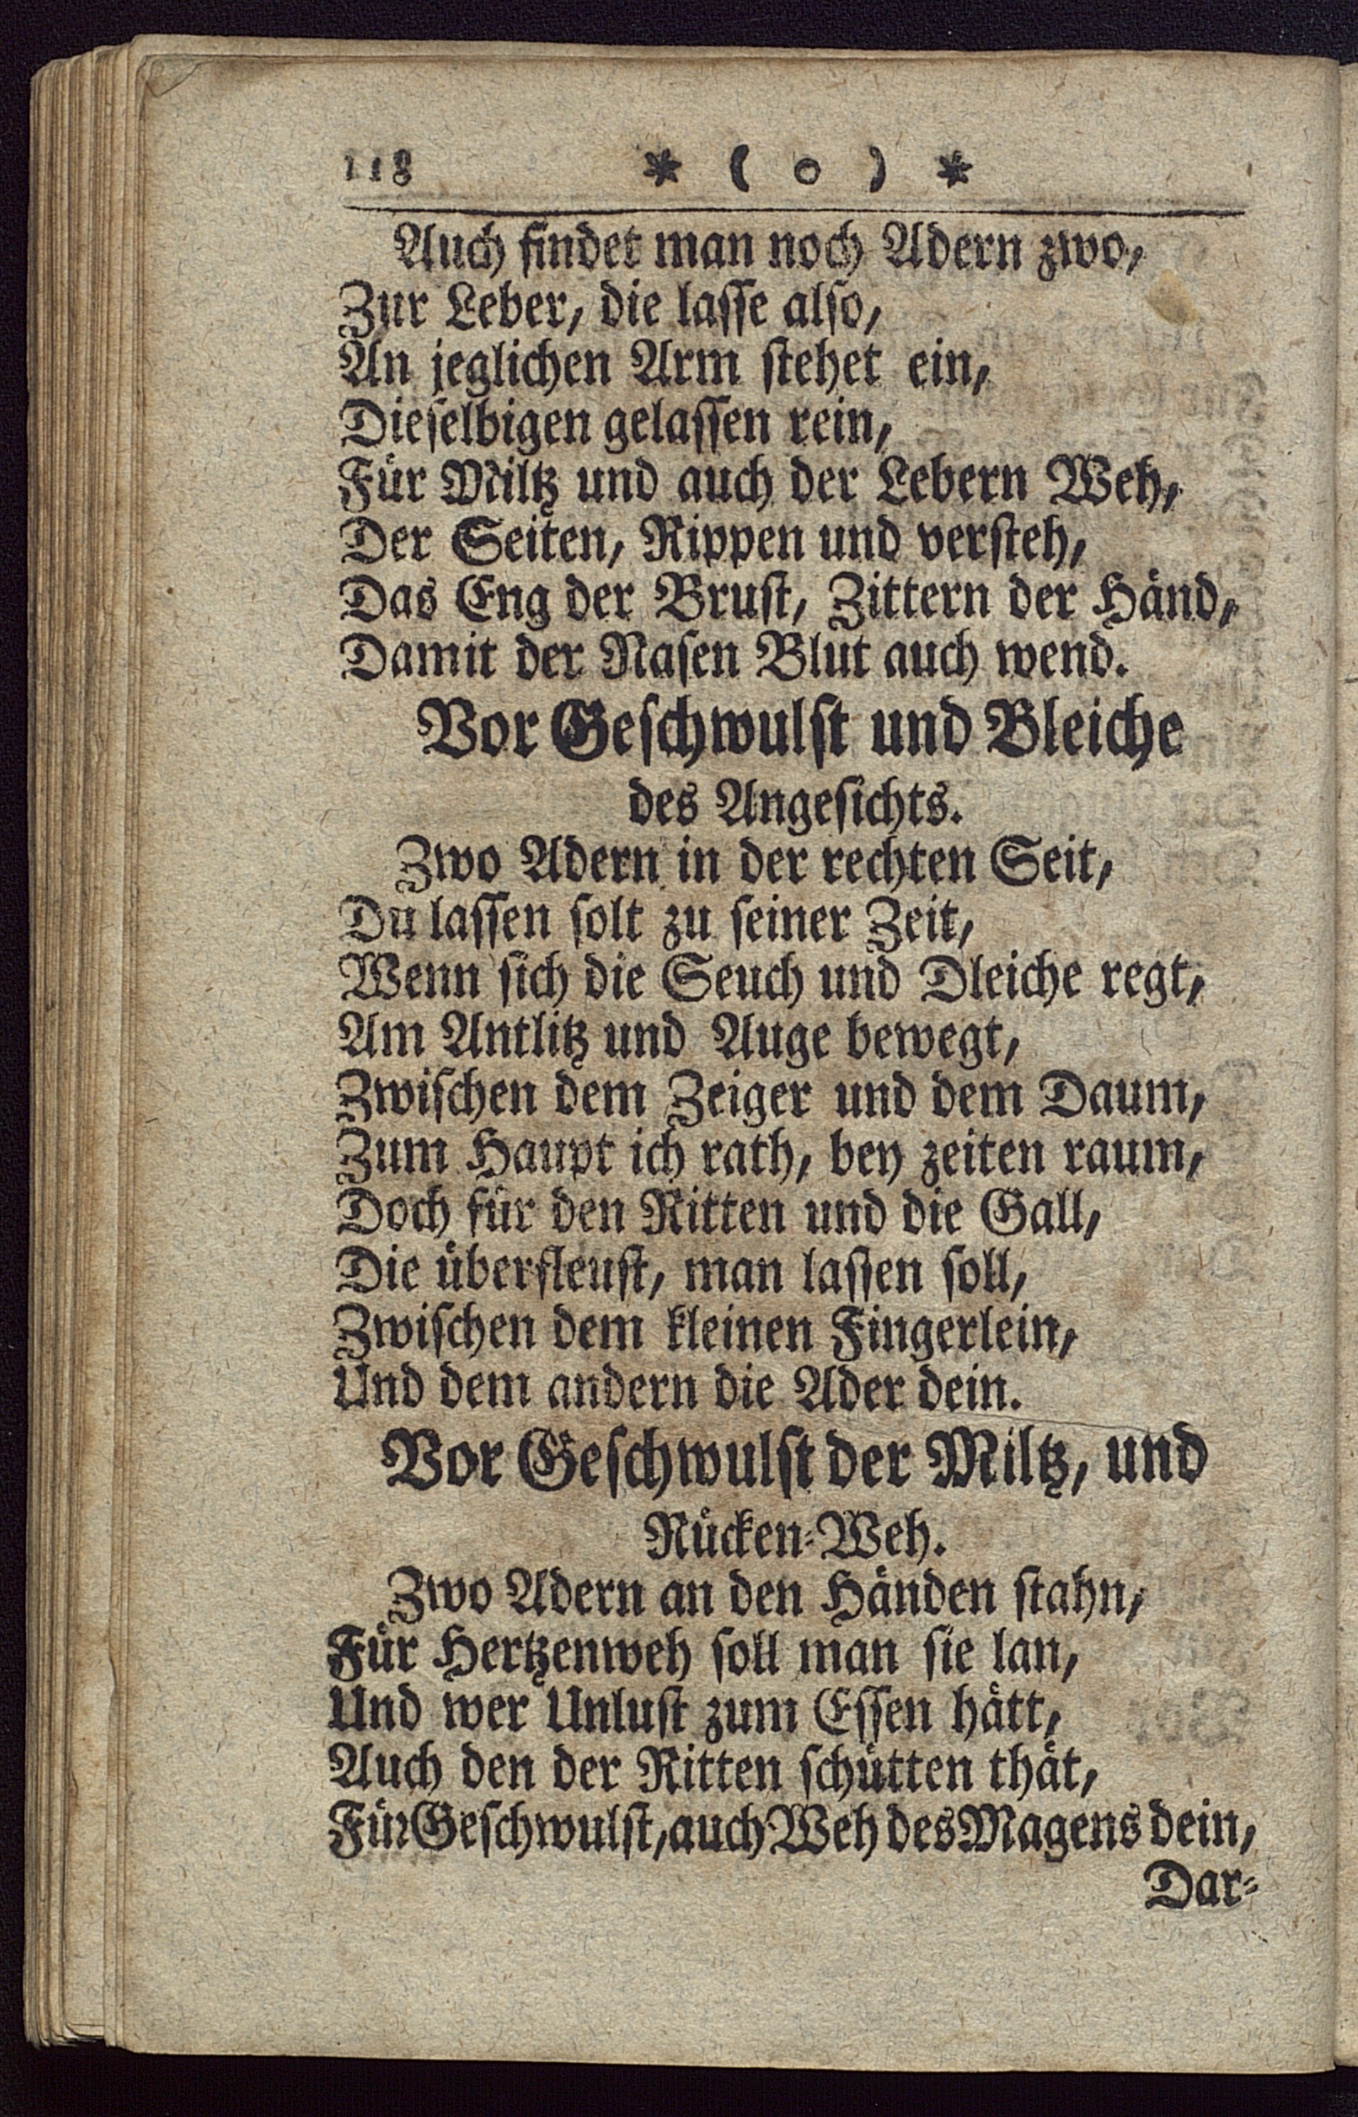 118 * ( o ) *
Auch findet man noch Adern zwo,
Zur Leber, die lasse also,
An jeglichen Arm stehet ein,
Dieselbigen gelassen rein,
Für Miltz und auch der Lebern Weh,
Der Seiten, Rippen und versteh,
Das Eng der Brust, Zittern der Händ,
Damit der Nasen Blut auch wend.
Vor Geschwulst und Bleiche
des Angesichts.
Zwo Adern in der rechten Seit,
Du lassen solt zu seiner Zeit,
Wenn sich die Seuch und Dleiche regt,
Am Antlitz und Auge bewegt,
Zwischen dem Zeiger und dem Daum,
Zum Haupt ich rath, bey zeiten raum,
Doch für den Ritten und die Gall,
Die überfleust, man lassen soll,
Zwischen dem kleinen Fingerlein,
Und dem andern die Ader dein.
Vor Geschwulst der Miltz, und
Rücken-Weh.
Zwo Adern an den Händen stahn,
Für Hertzenweh soll man sie lan,
Und wer Unlust zum Essen hätt,
Auch den der Ritten schütten thät,
Für Geschwulst, auch Weh des Magens dein,
Dar-